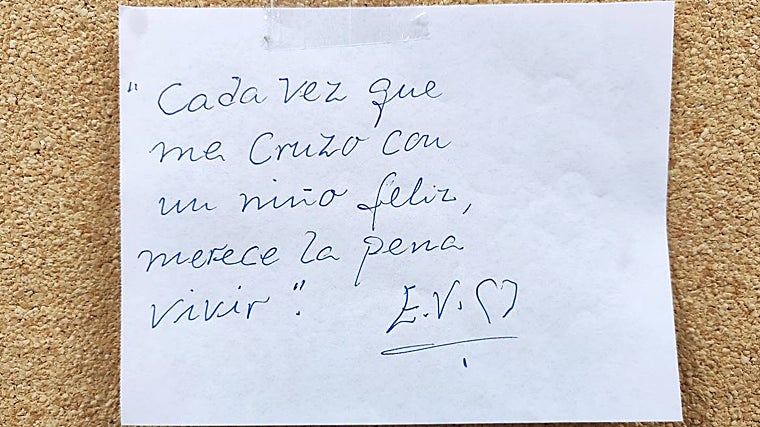 "Cada vez que
me cruzo con
un niño feliz,
merece la pena
vivir". E.V.